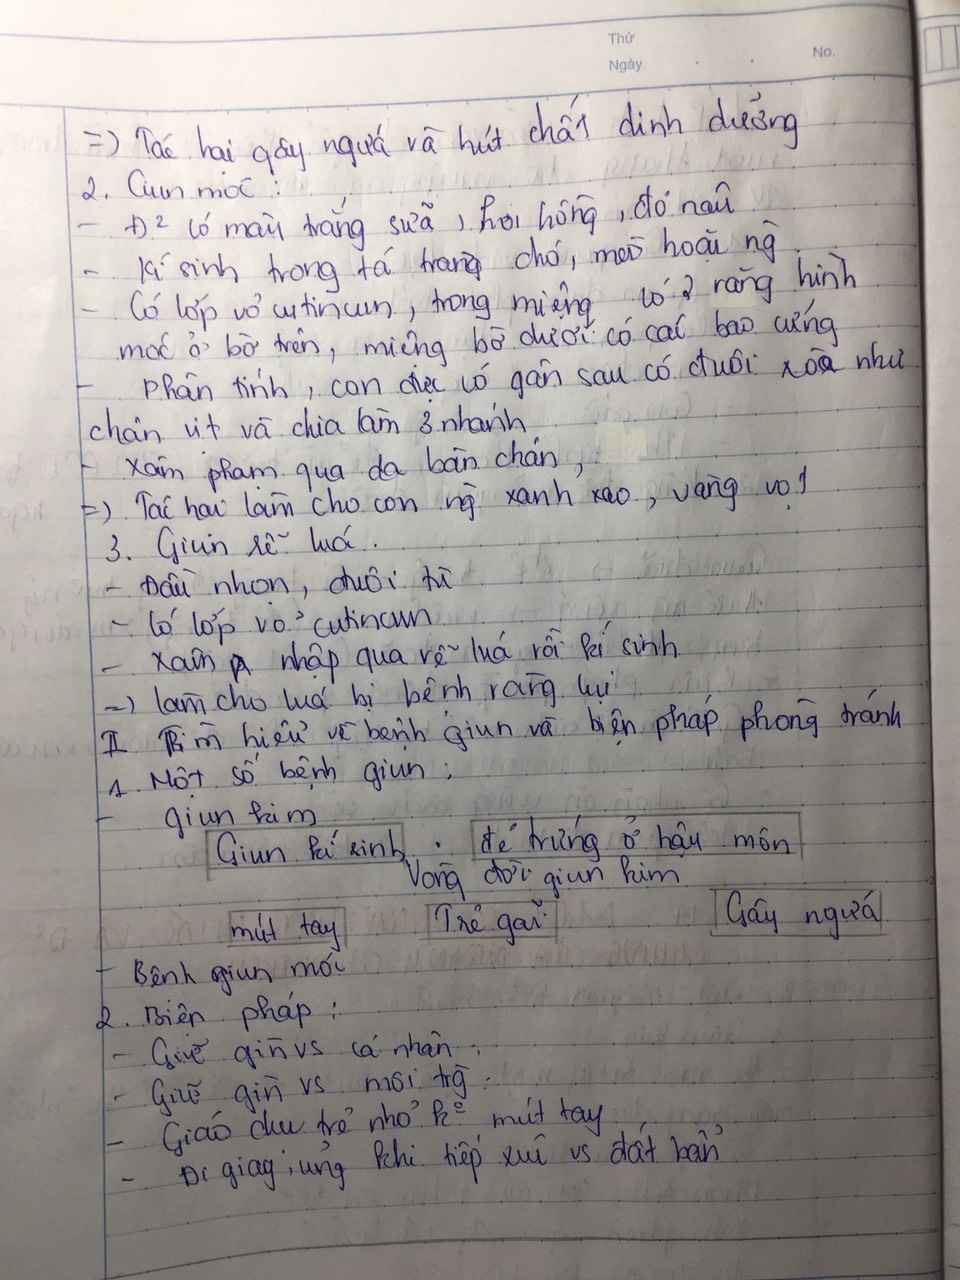 Thứ
Ngày
No.
=) Tác hại gây ngứa và hút chất dinh dưỡng
2. Giun móc :
- Đ² có màu trắng sữa, hơi hồng, đỏ nâu
- Kí sinh trong tá tràng chó, mèo hoặc ng̀
- Có lớp vỏ cuticun, trong miệng có 2 răng hình
móc ở bờ trên, miệng bờ dưới có các bao cứng
- Phân tính, con đực có gân sau có đuôi xòa như
chân vịt và chia làm 3 nhánh
- Xâm phạm qua da bàn chân,
=) Tác hại làm cho con ng̀ xanh xao, vàng vọt
3. Giun rễ lúa.
- Đầu nhọn, đuôi tù
- Có lớp vỏ cutincun
- Xâm nhập qua rễ lúa rồi kí sinh
=) làm cho lúa bị bệnh vàng lụi
II Tìm hiểu về bệnh giun và biện pháp phòng tránh
1. Một số bệnh giun :
- giun kim
Giun kí sinh . đẻ trứng ở hậu môn
Vòng đời giun kim
mút tay Trẻ gãi Gây ngứa
- Bệnh giun móc
2. Biện pháp :
- Giữ gìn vs cá nhân.
- Giữ gìn vs môi trg̀.
- Giáo dục trẻ nhỏ k° mút tay
- Đi giày, ủng khi tiếp xúc vs đất bẩn